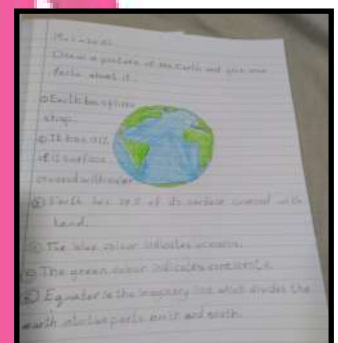 Draw a picture of the Earth and give some
facts about it.
① Earth has sphere
shape.
② It has 71%
of its surface
covered with water
③ Earth has 29% of its surface covered with
land.
④ The blue colour indicates oceans.
⑤ The green colour indicates continents.
⑥ Equator is the imaginary line which divides the
earth into two parts north and south.